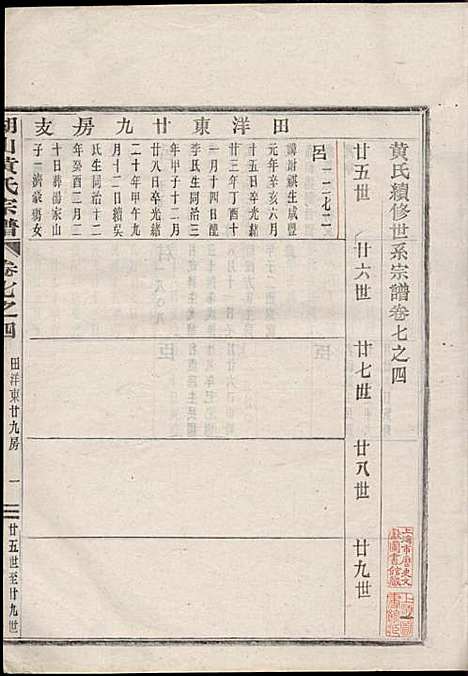 黃氏續修世系宗譜卷七之四
廿五世
廿六世
廿七世
廿八世
廿九世
田洋東廿九房支
呂一一二七二
諱謝祺生咸豐
元年辛亥六月
廿五日卒光緒
廿三年丁酉十
一月十四日醜
李氏生同治三
年甲子十二月
廿八日卒光緒
二十年甲午九
月十二日續吳
氏生同治十二
年癸酉二月二
十日葬湯家山
子二濟豪勇女
胡山黃氏宗譜
卷七之四
田洋東廿九房
一
廿五世至廿九世
上海市歷史文獻圖書館藏